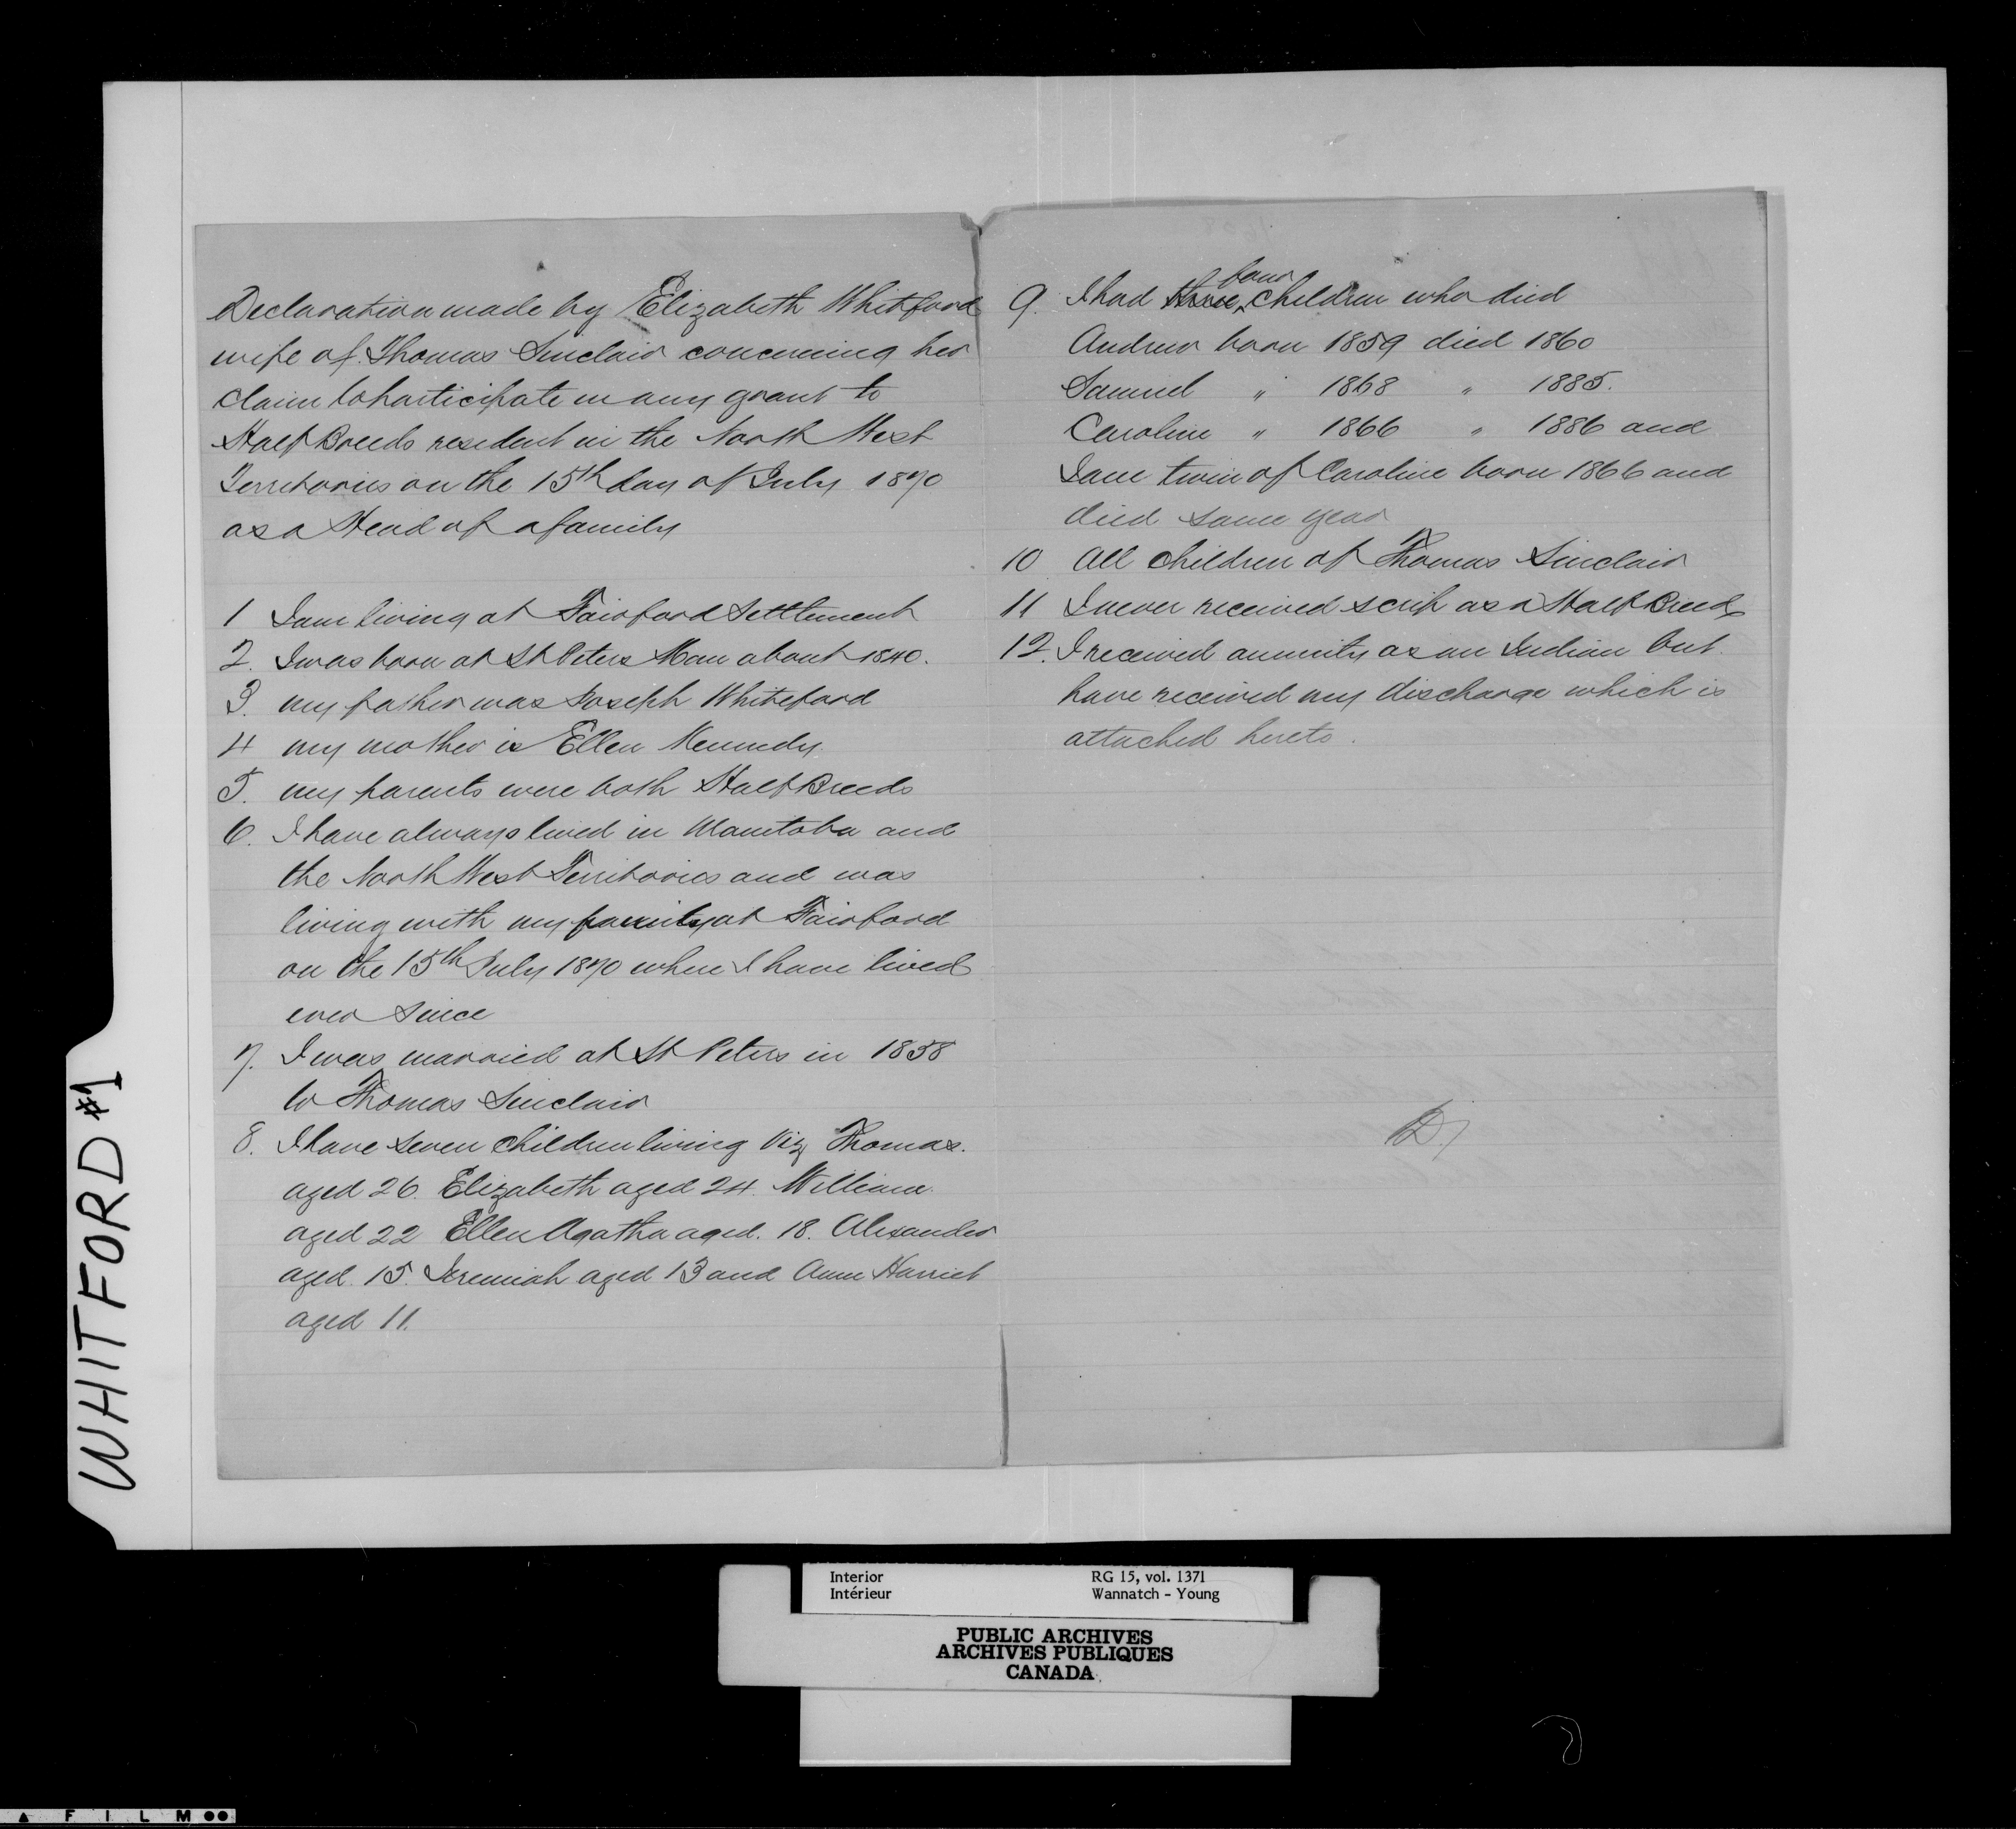 Declaration made by Elizabeth Whitford
wife of Thomas Sinclair concerning her
claim to participate in any grant to
Half Breeds resident in the North West
Territories on the 15th day of July 1870
as a Head of a family
1 I am living at Fairford Settlement
2. I was born at St Peters Man about 1840.
3. my father was Joseph Whiteford
4 my mother is Ellen Kennedy
5. my parents were both Half Breeds
6. I have always lived in Manitoba and
the North West Territories and was
living with my family at Fairford
on the 15th July 1870 where I have lived
ever since
7. I was married at St Peters in 1858
to Thomas Sinclair
8. I have seven children living Viz Thomas.
aged 26. Elizabeth aged 24. William
aged 22 Ellen Agatha aged. 18. Alexander
aged. 15. Jeremiah aged 13 and Ann Harriet
aged 11.
9. I had three four children who died
Andrew born 1859 died 1860
Samuel " 1868 " 1885.
Caroline " 1866 " 1886 and
Jane twin of Caroline born 1866 and
died same year
10 All children of Thomas Sinclair
11 I never received scrip as a Half Breed
12. I received annuity as an Indian but
have received my discharge which is
attached hereto.
WHITFORD #1
Interior RG 15, vol. 1371
Intérieur Wannatch - Young
PUBLIC ARCHIVES
ARCHIVES PUBLIQUES
CANADA
FILM